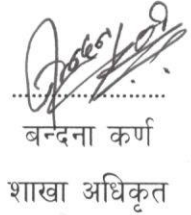 बन्दना कर्ण
शाखा अधिकृत